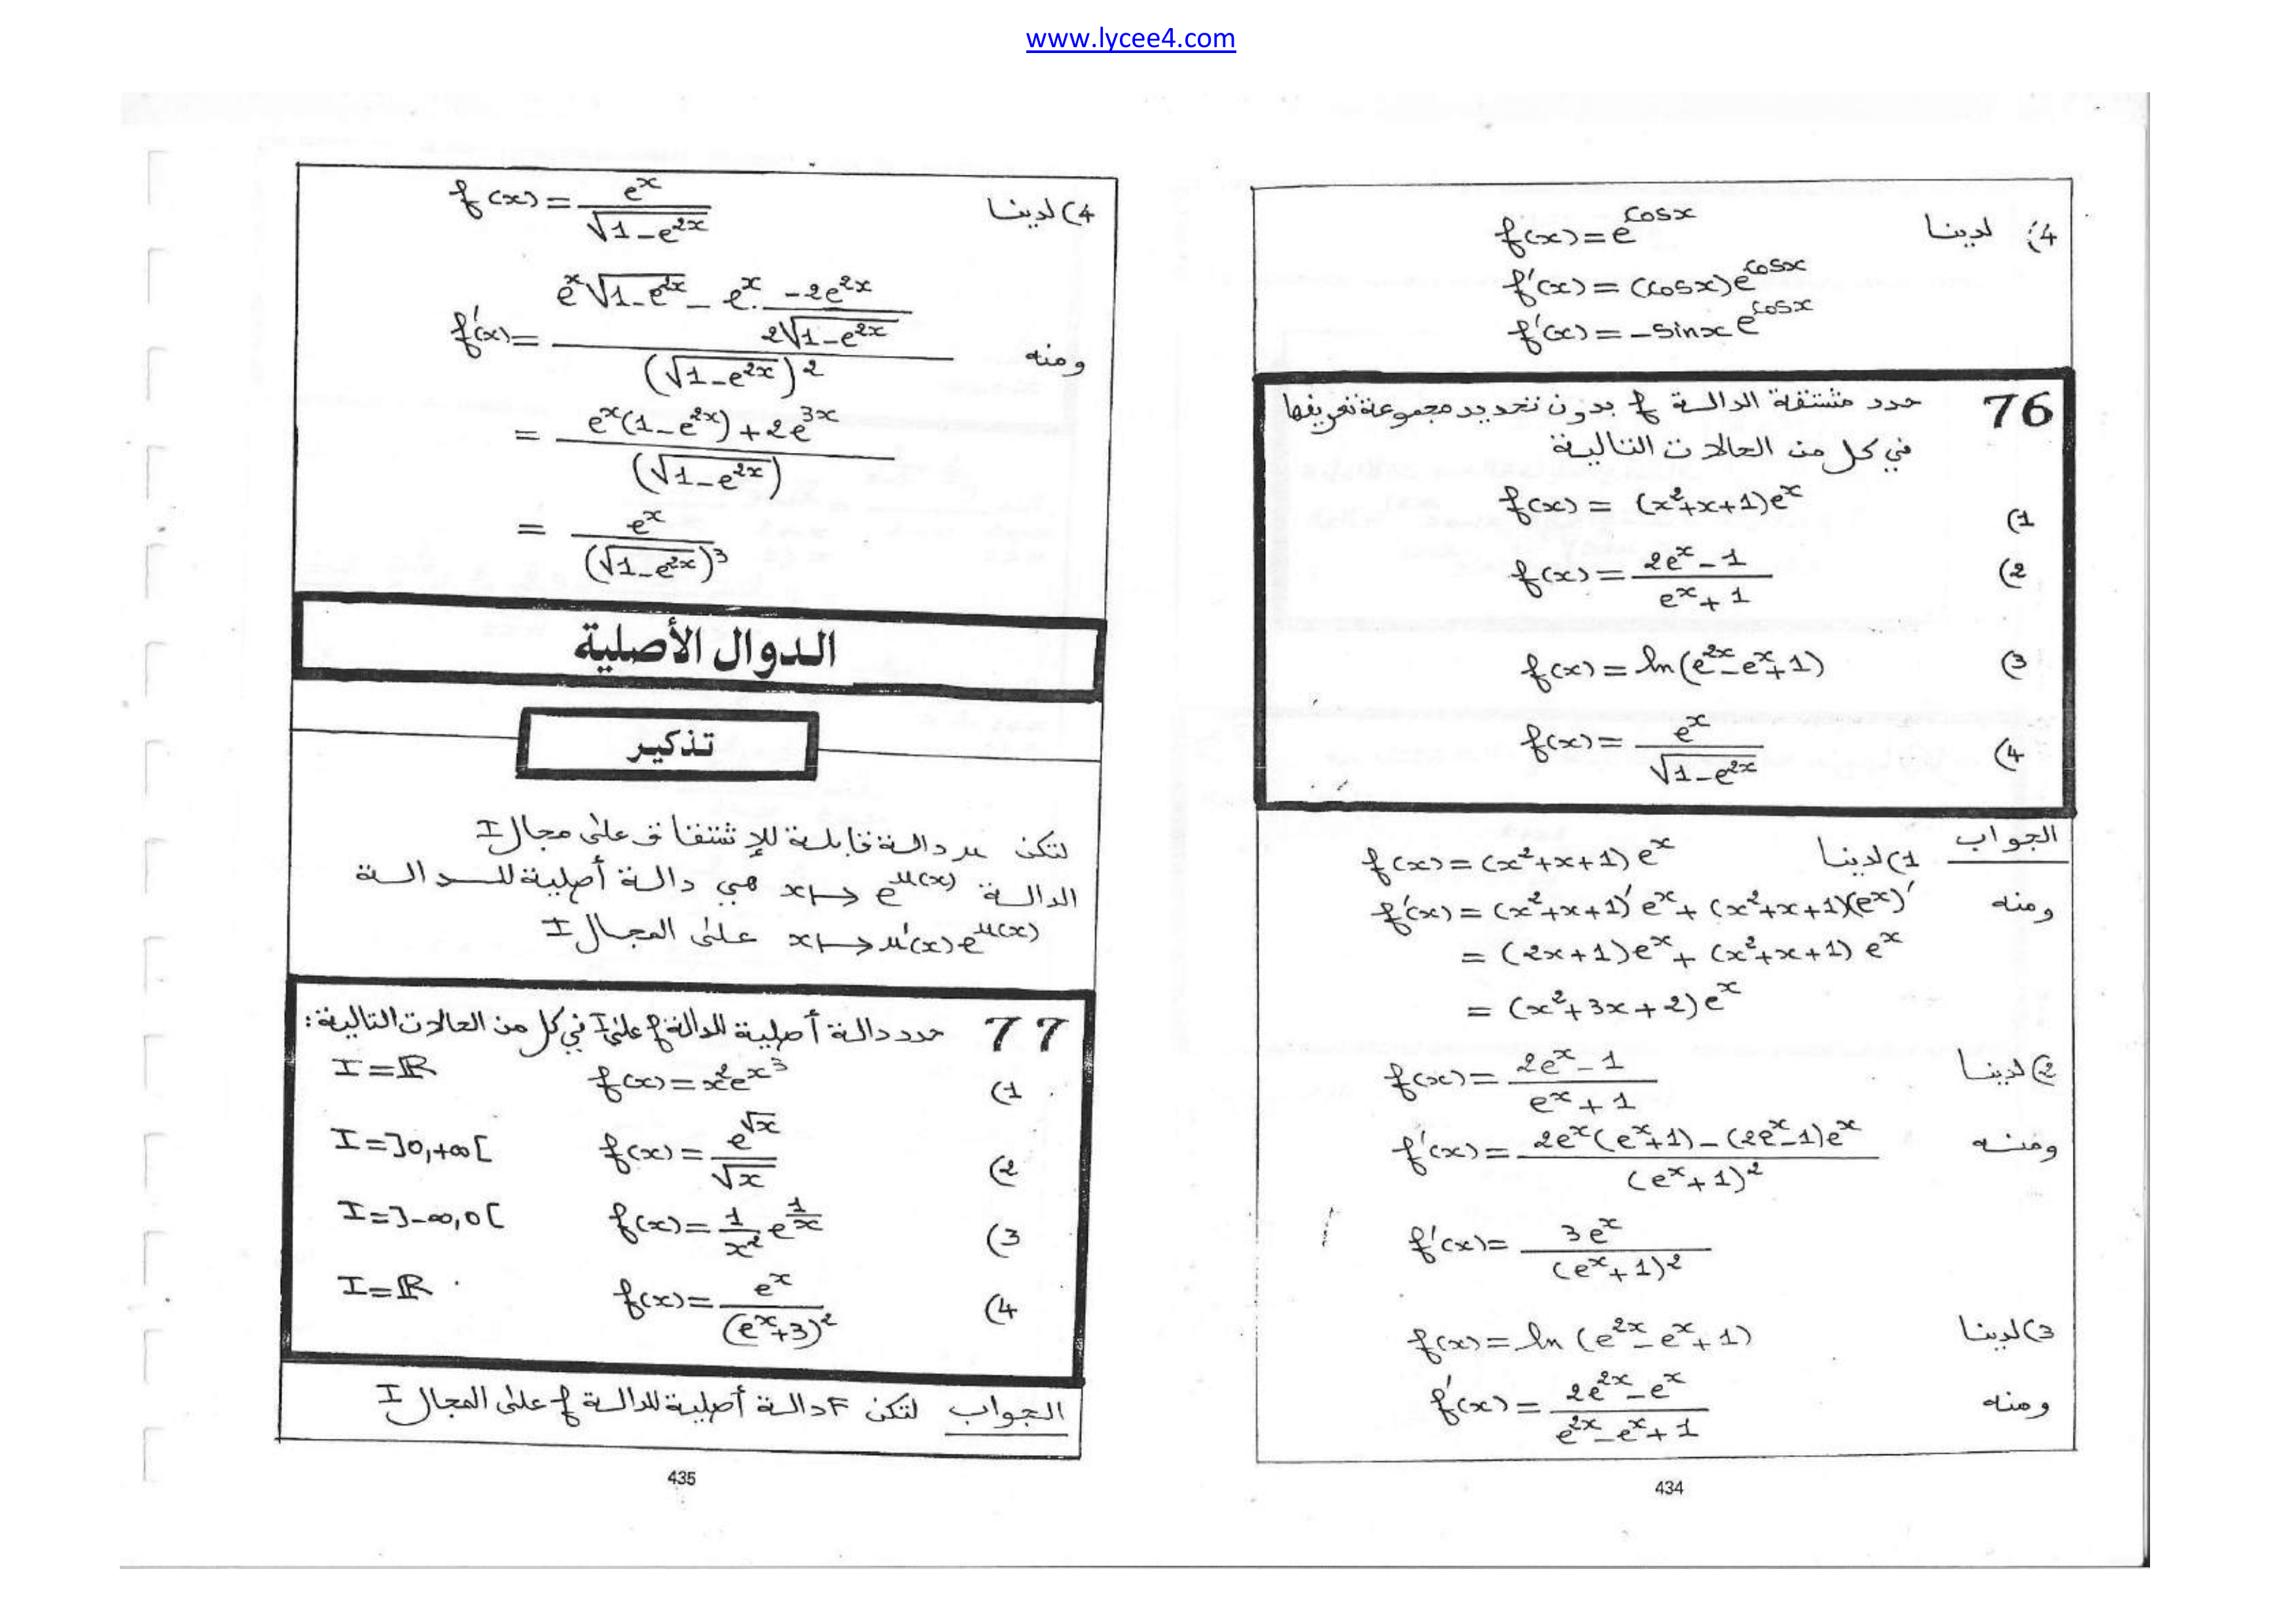 www.lycee4.com
4) لدينا f(x) = e^{cosx}
f'(x) = (cosx)e^{cosx}
f'(x) = -sinx e^{cosx}
76 حدد مشتقة الدالة f بدون تحديد مجموعة تعريفها
في كل من الحالات التالية
1) f(x) = (x²+x+1)e^x
2) f(x) = \frac{2e^x - 1}{e^x + 1}
3) f(x) = ln(e^{2x} - e^x + 1)
4) f(x) = \frac{e^x}{\sqrt{1-e^{2x}}}
الجواب 1) لدينا f(x) = (x²+x+1) e^x
ومنه f'(x) = (x²+x+1)' e^x + (x²+x+1)(e^x)'
= (2x+1)e^x + (x²+x+1) e^x
= (x²+3x+2) e^x
2) لدينا f(x) = \frac{2e^x - 1}{e^x + 1}
ومنه f'(x) = \frac{2e^x(e^x+1) - (2e^x-1)e^x}{(e^x+1)^2}
f'(x) = \frac{3e^x}{(e^x+1)^2}
3) لدينا f(x) = ln(e^{2x} - e^x + 1)
ومنه f'(x) = \frac{2e^{2x} - e^x}{e^{2x} - e^x + 1}
434
4) لدينا f(x) = \frac{e^x}{\sqrt{1-e^{2x}}}
ومنه f'(x) = \frac{e^x\sqrt{1-e^{2x}} - e^x \cdot \frac{-2e^{2x}}{2\sqrt{1-e^{2x}}}}{(\sqrt{1-e^{2x}})^2}
= \frac{e^x(1-e^{2x}) + 2e^{3x}}{(\sqrt{1-e^{2x}})}
= \frac{e^x}{(\sqrt{1-e^{2x}})^3}
الدوال الأصلية
تذكير
لتكن u دالة قابلة للإشتقاق على مجال I
الدالة x ↦ e^{u(x)} هي دالة أصلية للدالة
x ↦ u'(x)e^{u(x)} على المجال I
77 حدد دالة أصلية للدالة f على I في كل من الحالات التالية:
1) f(x) = x²e^{x³} I = ℝ
2) f(x) = \frac{e^{\sqrt{x}}}{\sqrt{x}} I = ]0,+∞[
3) f(x) = \frac{1}{x²} e^{\frac{1}{x}} I = ]-∞,0[
4) f(x) = \frac{e^x}{(e^x+3)^2} I = ℝ
الجواب لتكن F دالة أصلية للدالة f على المجال I
435